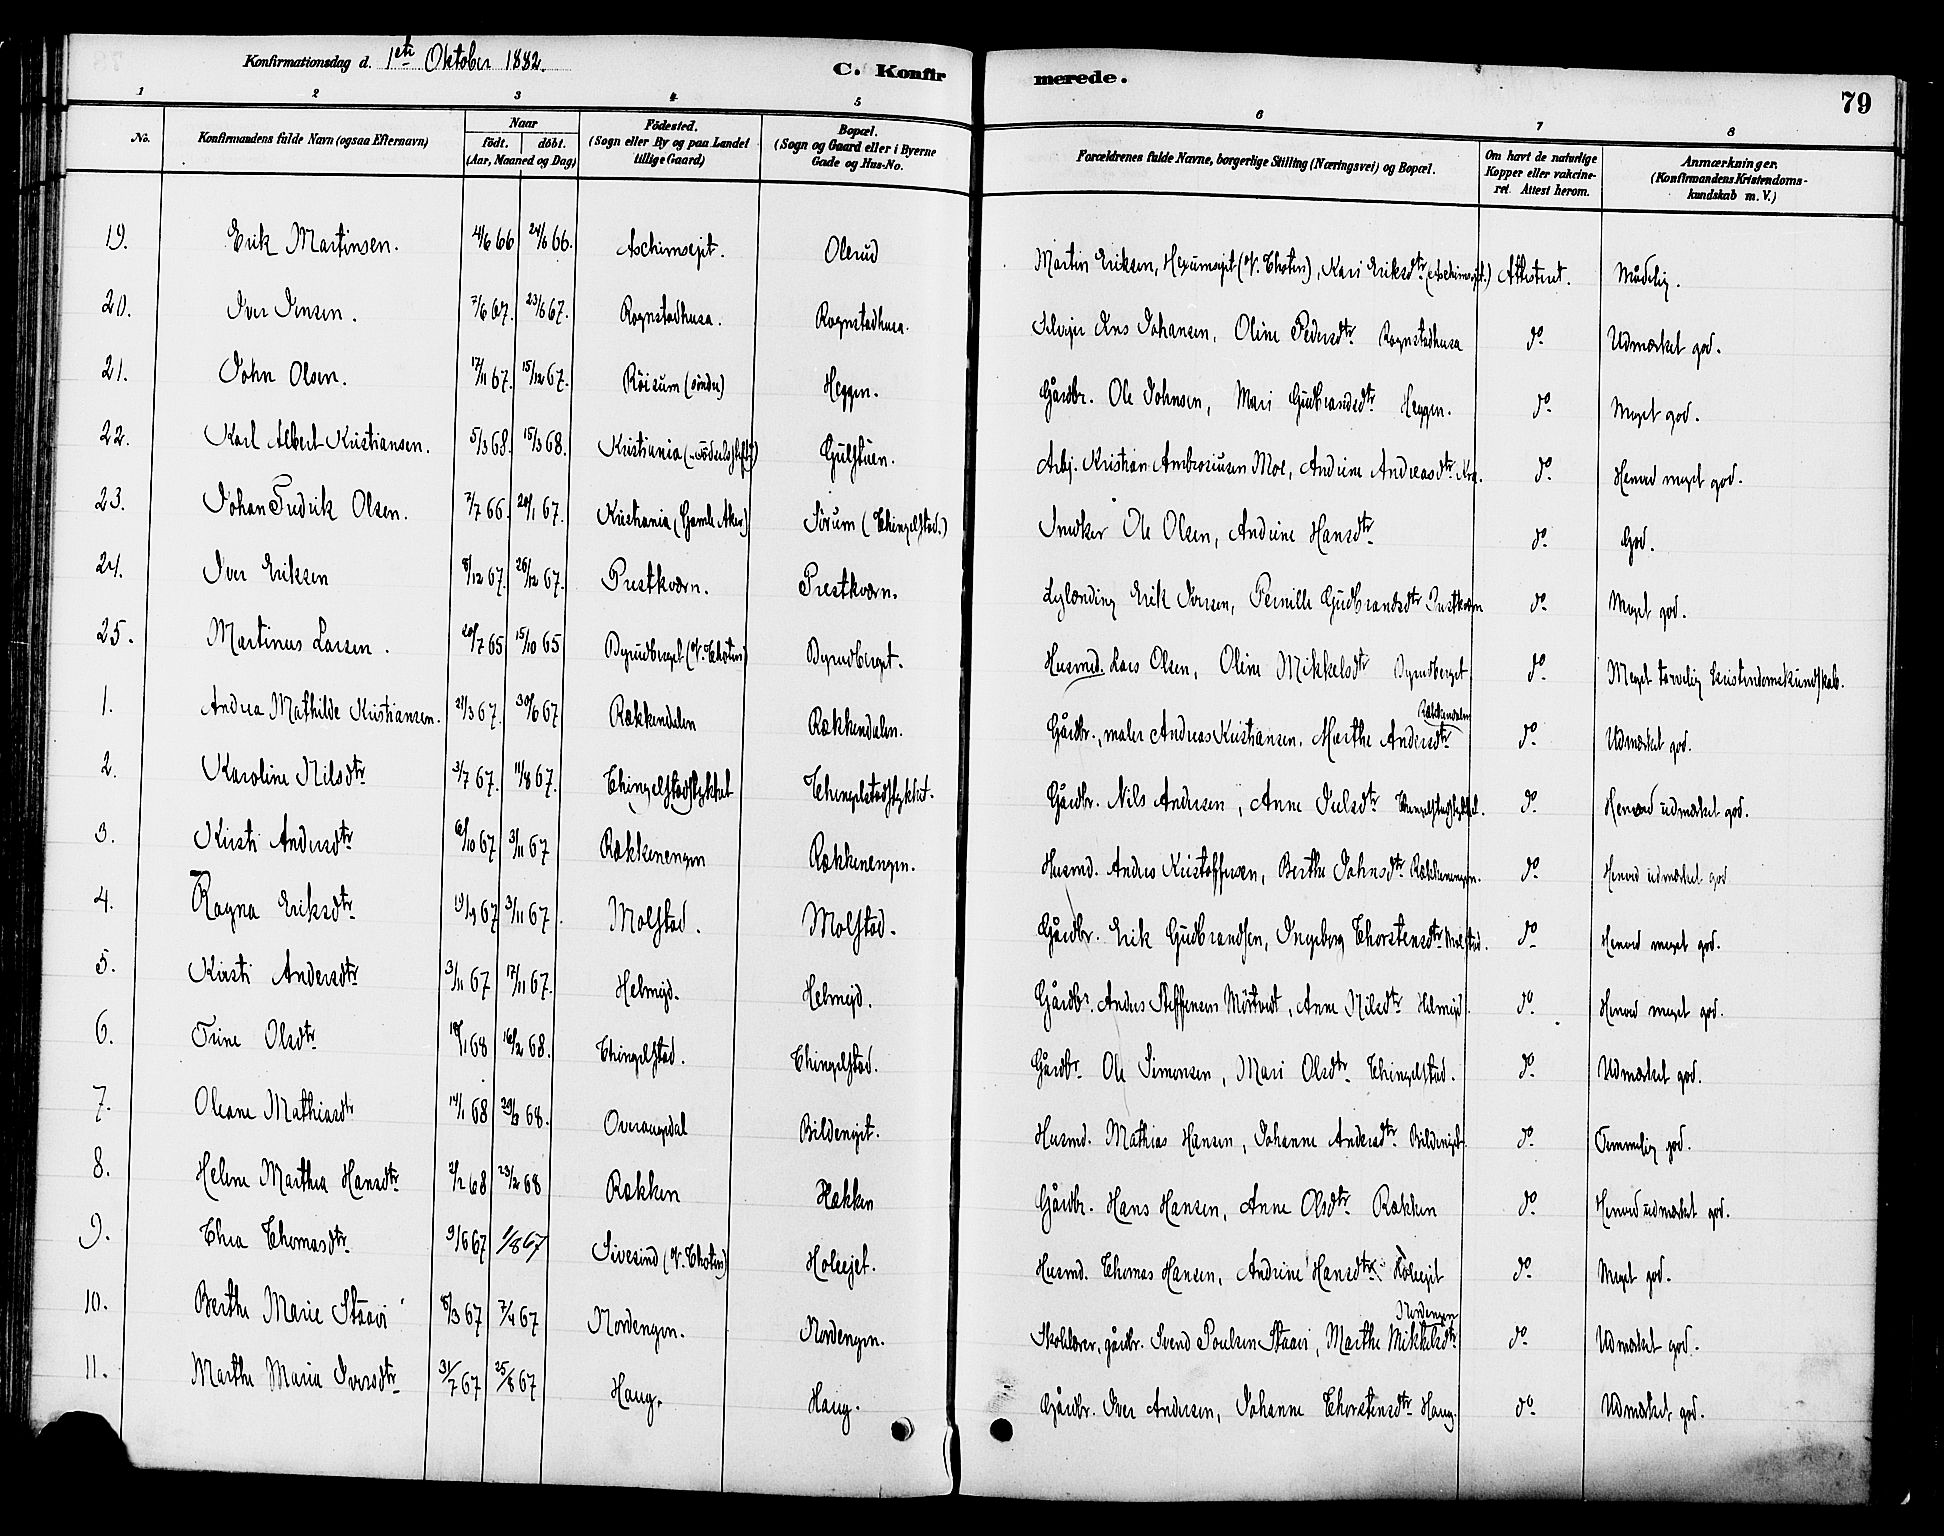 Konfirmationsdag d. 1ste Oktober 1882.
C. Konfirmerede.
79
1 2 3 4 5 6 7 8
No. | Konfirmandens fulde Navn (ogsaa Efternavn) | Naar født. døbt. (Aar, Maaned og Dag) | Fødested. (Sogn eller By og paa Landet tillige Gaard) | Bopæl. (Sogn og Gaard eller i Byerne Gade og Hus-No. | Forældrenes fulde Navne, borgerlige Stilling (Næringsvei) og Bopæl. | Om havt de naturlige Kopper eller vakcineret. Attest herom. | Anmærkninger. (Konfirmandens Kristendomskundskab m. V.)
19. Erik Martinsen. 4/6 66 24/6 66. Aschimsejet. Olerud Martin Eriksen, (V. Thoten), Kari Eriksdtr Attesteret. Mådelig.
20. Iver Jensen. 7/6 67. 23/6 67. Rognstadhusa. Rognstadhusa. Jens Johansen, Oline Pedersdtr. Rognstadhusa do. Udmærket god.
21. John Olsen. 17/11 67. 15/12 67. Röisum (söndre) Heggen. Gårdbr. Ole Johnsen, Mari Gudbrandsdtr Heggen. do. Meget god.
22. Karl Albert Kristiansen. 5/3 68. 15/3 68. Kristiania Gulstuen. Arbj. Kristian Ambrosiusen Moe, Andrine Andreasdtr Kra. do. Henved meget god.
23. Johan Fredrik Olsen. 7/7 66. 20/1 67. Kristiania (Gamle Aker) Sörum (Thingelstad.) Snedker Ole Olsen, Andrine Hansdtr do. God.
24. Iver Eriksen 8/12 67. 26/12 67. Prestkværn. Prestkværn. Erik Iversen, Pernille Gudbrandsdtr Prestkværn do. Meget god.
25. Martinus Larsen. 20/7 65 15/10 65 Byrudberget (V. Thoten) Byrudberget. Husmd. Lars Olsen, Oline Mikkelsdtr Byrudberget do. Meget tarvelig kristendomskundskab.
1. Andrea Mathilde Kristiansen. 21/3 67. 30/6 67 Rækkendalen Rækkendalen. Gårdbr., maler Andreas Kristiansen. Marthe Andersdtr Rækkendalen do. Udmærket god.
2. Karoline Nilsdtr 3/7 67. 11/8 67. Thingelstadstykket Thingelstadstykket. Gårdbr. Nils Andersen, Anne Juelsdtr Thingelstadstykket. do. Henved udmærket god.
3. Kirsti Andersdtr 6/10 67 3/11 67 Rækkenengen Rækkenengen. Husmd. Anders Kristoffersen, Berthe Johnsdtr Rækkenengen. do. Henved udmærket god
4. Ragna Eriksdtr 19/9 67 3/11 67. Molstad. Molstad. Gårdbr. Erik Gudbrandsen, Ingeborg Thorstensdtr Molstad. do. Henved meget god.
5. Kirsti Andersdtr 3/11 67 17/11 67. Helmejd. Helmejd. Gårdbr. Anders Steffensen Mörtvedt, Anne Nilsdtr Helmejd. do. Henved meget god.
6. Trine Olsdtr 18/1 68 16/2 68. Thingelstad. Thingelstad. Gårdbr Ole Simensen, Mari Olsdtr Thingelstad. do. Udmærket god.
7. Oleane Mathiasdtr 14/1 68 29/3 68. Bildenejet. Husmd. Mathias Hansen, Johanne Andersdtr Bildenejet. do. Temmelig god.
8. Helene Marthea Hansdtr 2/2 68 23/2 68 Rækken Rækken Gårdbr. Hans Hansen, Anne Olsdtr Rækken do. Henved udmærket god.
9. Thea Thomasdtr. 9/6 67 1/8 67 Sivesind (V. Thoten) Holeejet. Husmd. Thomas Hansen, Andrine Hansdtr Holeejet do. Meget god.
10. Berthe Marie Staavi 8/3 67 7/4 67 Nordengen. Nordengen. Skolelærer, gårdbr. Svend Poulsen Staavi, Marthe Mikkelsdtr. Nordengen do. Udmærket god.
11. Marthe Maria Iversdtr 31/7 67 25/8 67 Haug. Haug. Gårdbr. Iver Andersen, Johanne Thorstensdtr Haug. do. Udmærket god.